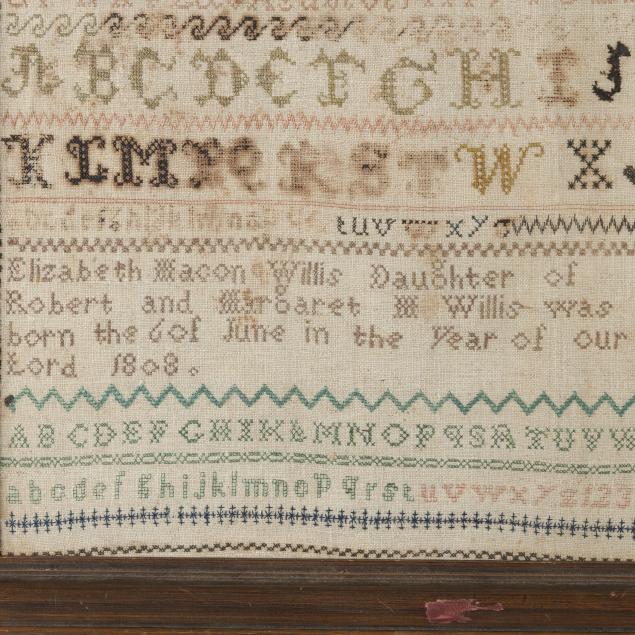 A B C D E F G H I J
K L M N O P R S T W X
a b c d e f g h i j k l m n o p q r t u v w x y z
Elizabeth Macon Willis Daughter of
Robert and Margaret M Willis was
born the 6 of June in the Year of our
Lord 1808.
A B C D E F G H I K L M N O P Q S A T U V W
a b c d e f g h i j k l m n o p q r s t u v w x y z 1 2 3